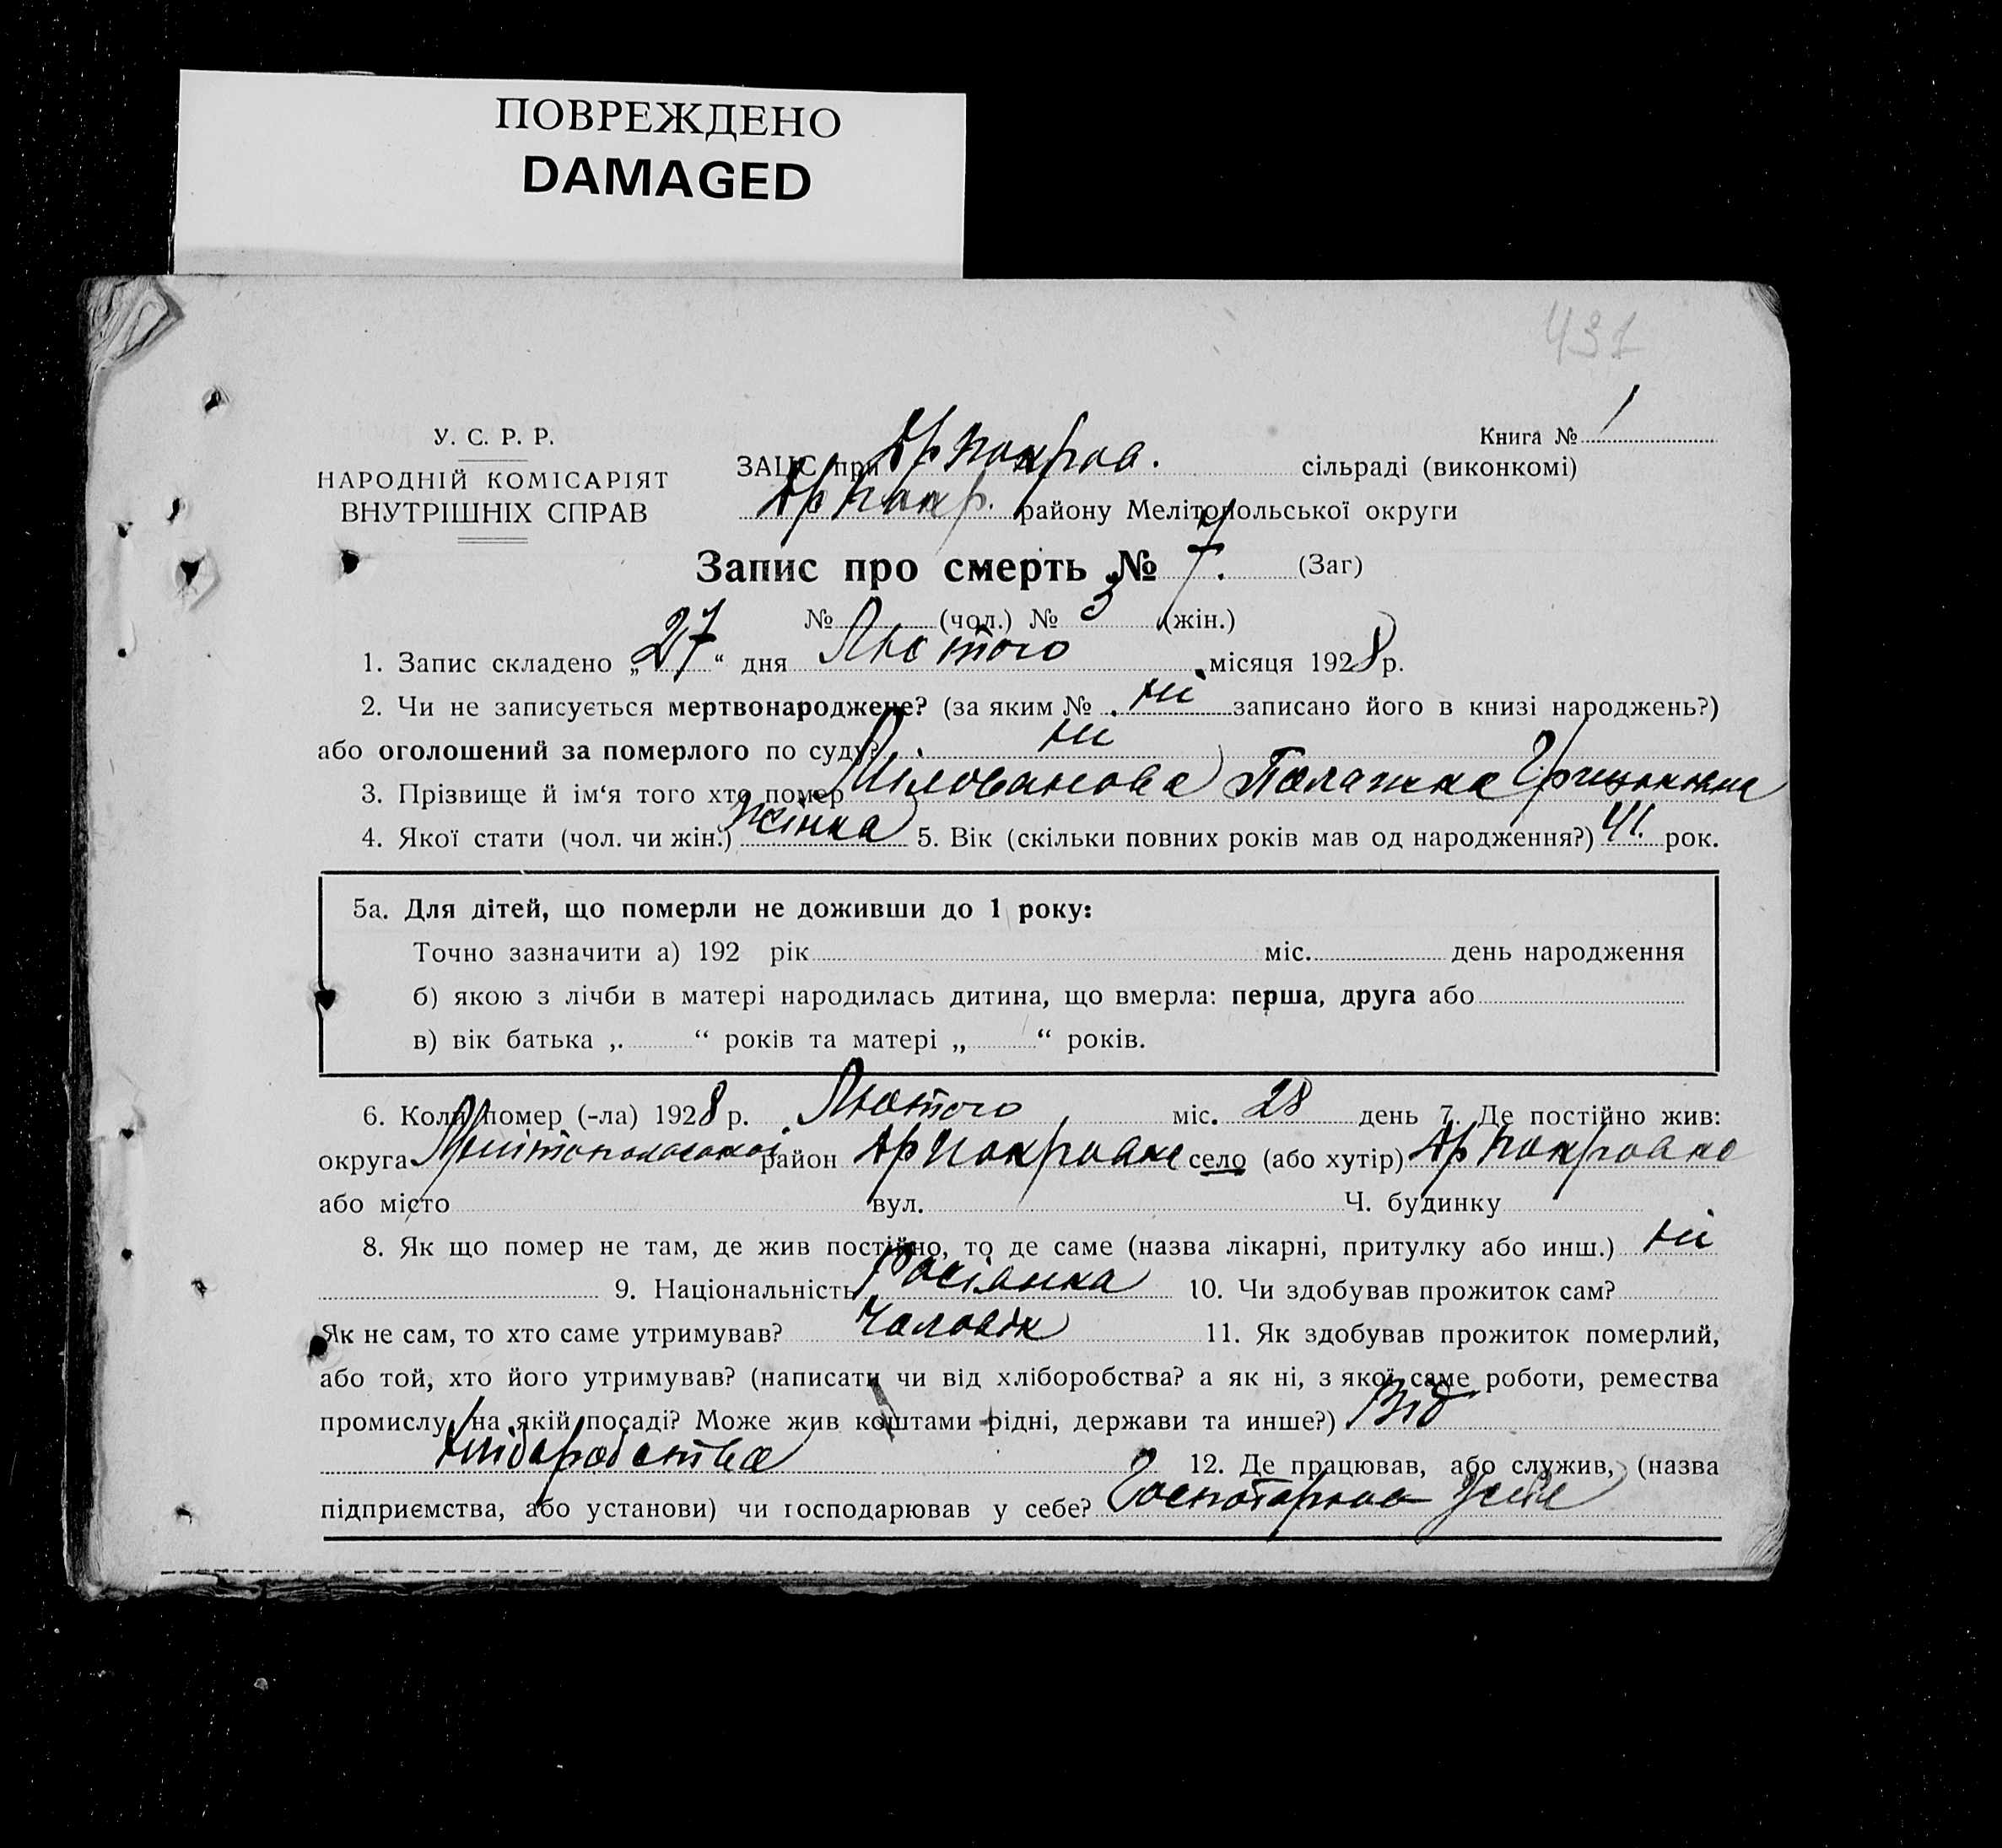 ПОВРЕЖДЕНО
DAMAGED
431
У. С. Р. Р.
НАРОДНІЙ КОМІСАРІЯТ
ВНУТРІШНІХ СПРАВ
Книга № 1
ЗАГС при сільраді (виконкомі)
району Мелітопольської округи
Запис про смерть № 7. (Заг)
№ (чол.) № 3 (жін.)
1. Запис складено „27“ дня Лютого місяця 1928 р.
2. Чи не записується мертвонароджене? (за яким № ні записано його в книзі народжень?)
або оголошений за померлого по суду? ні
3. Прізвище й ім‘я того хто помер Палажка
4. Якої стати (чол. чи жін.) жінка 5. Вік (скільки повних років мав од народження?) 41. рок.
5а. Для дітей, що померли не доживши до 1 року:
Точно зазначити а) 192 рік міс. день народження
б) якою з лічби в матері народилась дитина, що вмерла: перша, друга або
в) вік батька „ “ років та матері „ “ років.
6. Коли помер (-ла) 1928 р. Лютого міс. 28 день 7. Де постійно жив:
округа Мелітопольської район село (або хутір)
або місто вул. Ч. будинку
8. Як що помер не там, де жив постійно, то де саме (назва лікарні, притулку або инш.) ні
9. Національність Росіянка 10. Чи здобував прожиток сам?
Як не сам, то хто саме утримував? Чоловік 11. Як здобував прожиток померлий,
або той, хто його утримував? (написати чи від хліборобства? а як ні, з якої саме роботи, ремества
промислу, на якій посаді? Може жив коштами рідні, держави та инше?) Від
хліборобства 12. Де працював, або служив, (назва
підприємства, або установи) чи господарював у себе?